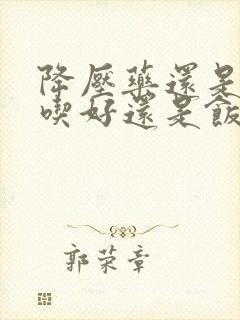 降壓藥還是
喫好還是飯
郭荣章